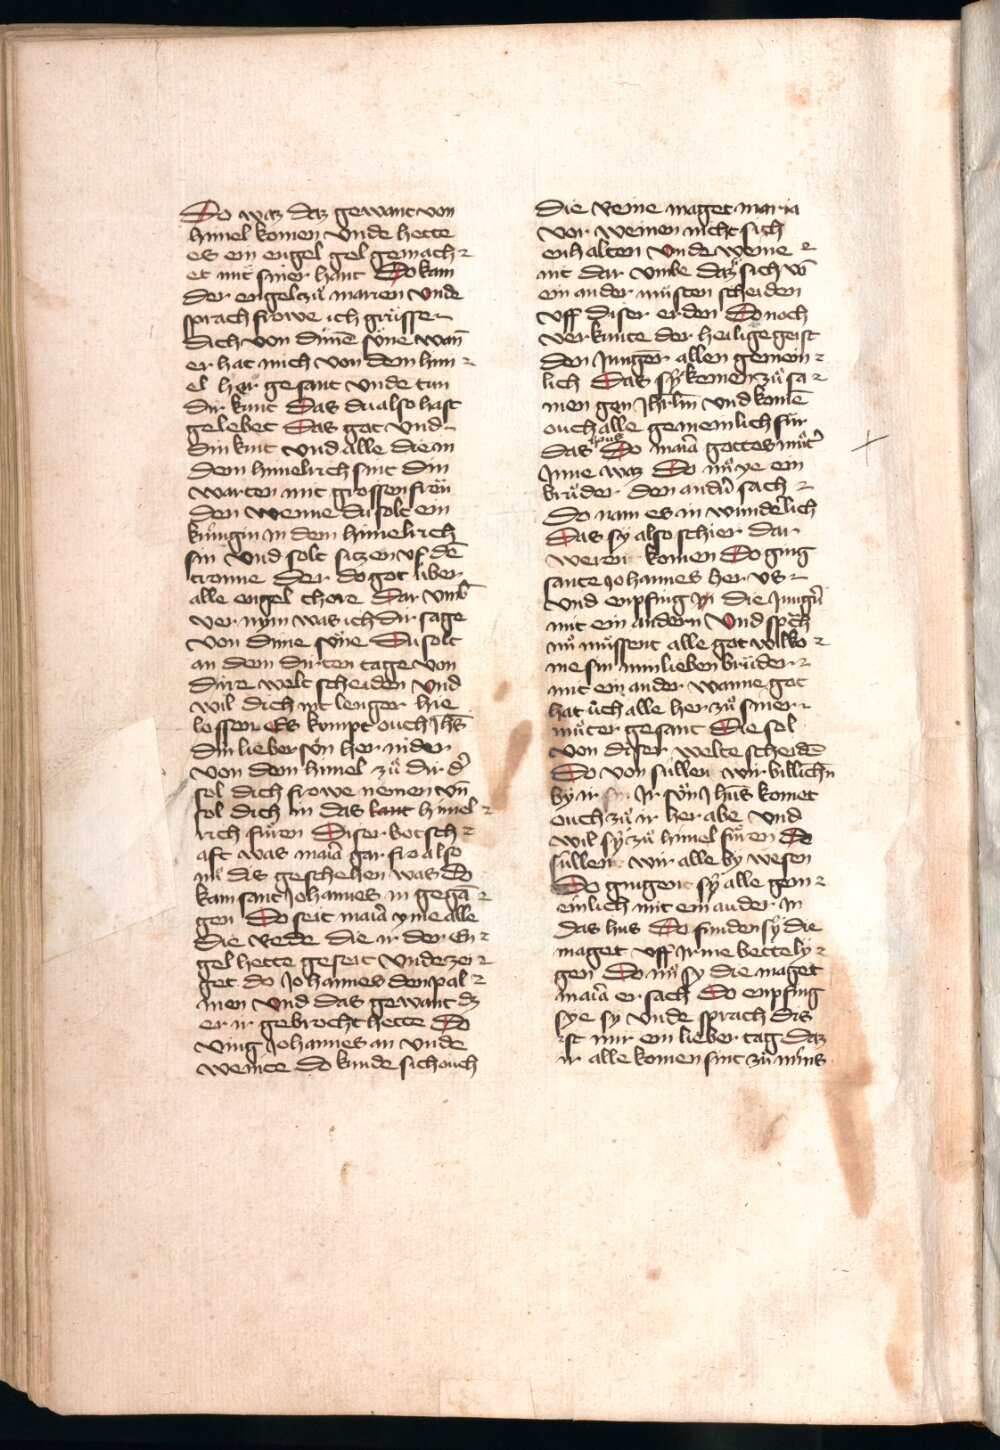 Do waz daz gewant von
himel komen vnde hette
es ein engel gel gemach⸗
et mit siner hant Do kam
der engel zuͦ marien vnde
sprach frowe ich gruͤsse
dich von dinē suͦne wan̄
er hat mich von dem him⸗
el her gesant vnde tun
dir kunt Das du also hast
gelebet Das got vnd
din kint vnd alle die in
dem himelrich sint din
warten mit grossen froͤu
den wenne du solt ein
kúnigin in dem himelrich
sin vnd solt sitzen vf dē
tronne der do got úber
alle engel chore Dar vmb
ver nym was ich dir sage
von dime súne Du solt
an dem dirten tage von
dire welt scheiden vnd
wil dich nit lenger hie
lossen Es kumpt ouch Jhs̄
din lieber sún her nider
von dem himel zuͦ dir d'
sol dich frowe nemen vn̄
sol dich in das lant himel⸗
rich fuͤren Diser botsch⸗
aft was maiā gar fro also
nuͦ dis geschehen was do
kam sant Johannes in gegā
gen Do seit maiā yme alle
die rede die ir der En⸗
gel hette geseit vnde zei⸗
get do Johannes den pal⸗
men vnd das gewant dz
er ir gebrocht hette Do
ving Johannes an vnde
weinte do kunde sich ouch
die reine maget maria
vor weinen nicht sich
enhalten vnde weine⸗
nit dar vmbe daz sich vō
ein ander muͤsten scheiden
vff diser erden Do noch
verkunte der heilige geist
den Jungern allen gemein⸗
lich Das sÿ kemen zuͦ sa⸗
men gen Jhrlm̄ vnd komē
ouch alle gemeinlich fúr
das hus Do maiā gottes muͦt'
Jnne waz Do nuͦ ye ein
bruͤder den and'n sach
Do nam es in wunderlich
Das sy also schier dar
weren komen Do ging
sante Johannes her vs
vnd enpfing In die Jung'n
mit ein andern vnd sprach
nuͦ muͤssent alle got wilko⸗
me sin min lieben bruͤder
mit ein ander wanne got
hat úch alle her zuͦ siner
muͦter gesant Die sol
von diser welte scheidē
Do von súllen wir billichn
by ir sin Jr sún Jhūs komet
ouch zuͦ ir her abe vnd
wil sÿ zuͦ himel fuͤren Do
súllen wir alle by wesen
Do gingen sÿ alle gem⸗
einlich mit ein ander In
das hus Do finden sÿ die
maget vff Irme bette ly⸗
gen Do nuͦ sy die maget
maiā er sach Do enpfing
sye sy vnde sprach dis
ist mir ein lieber tag daz
ir alle komen sint zuͦ mins